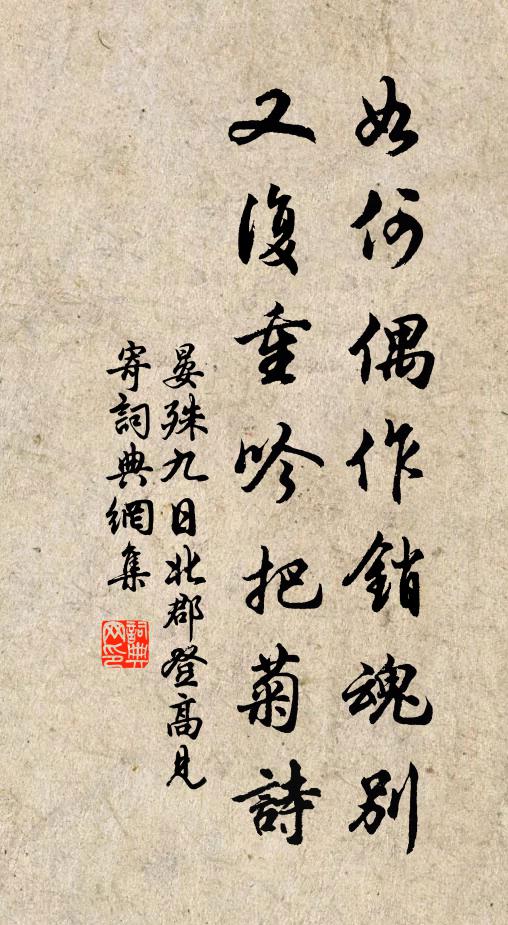 如何偶作銷魂別
又復重吟把菊詩
晏殊九日北郡登高見
寄詞典網集
詞典網印